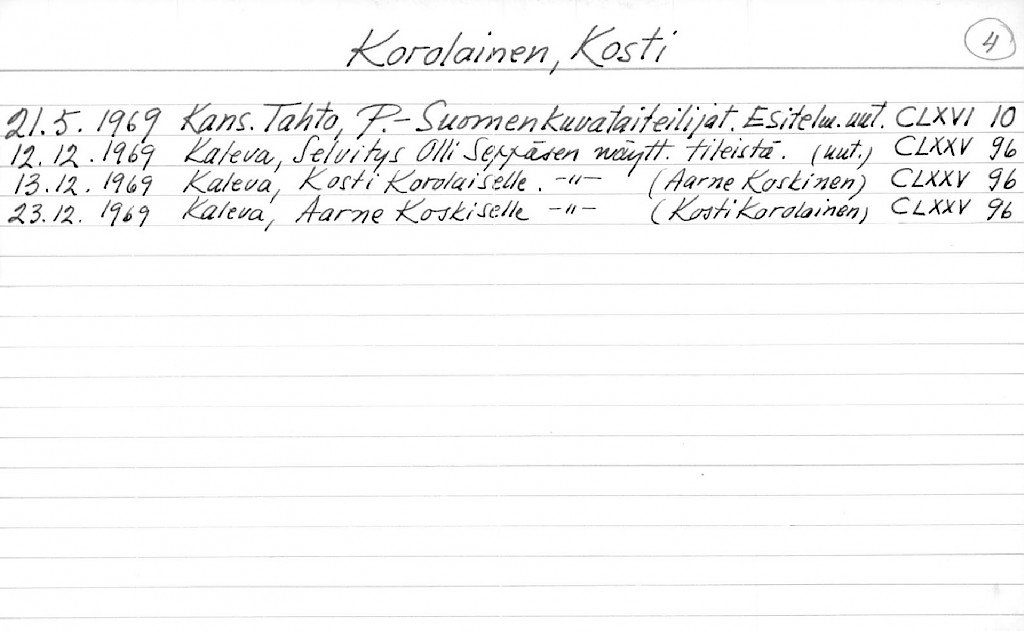 Korolainen, Kosti
4
21.5.1969 Kans. Tahto, P.-Suomen kuvataiteilijat. Esitelm. uut. CLXVI 10
12.12.1969 Kaleva, Selvitys Olli Seppäsen näytt. tileistä. (uut.) CLXXV 96
13.12.1969 Kaleva, Kosti Korolaiselle. -"- (Aarne Koskinen) CLXXV 96
23.12.1969 Kaleva, Aarne Koskiselle -"- (Kosti Korolainen) CLXXV 96